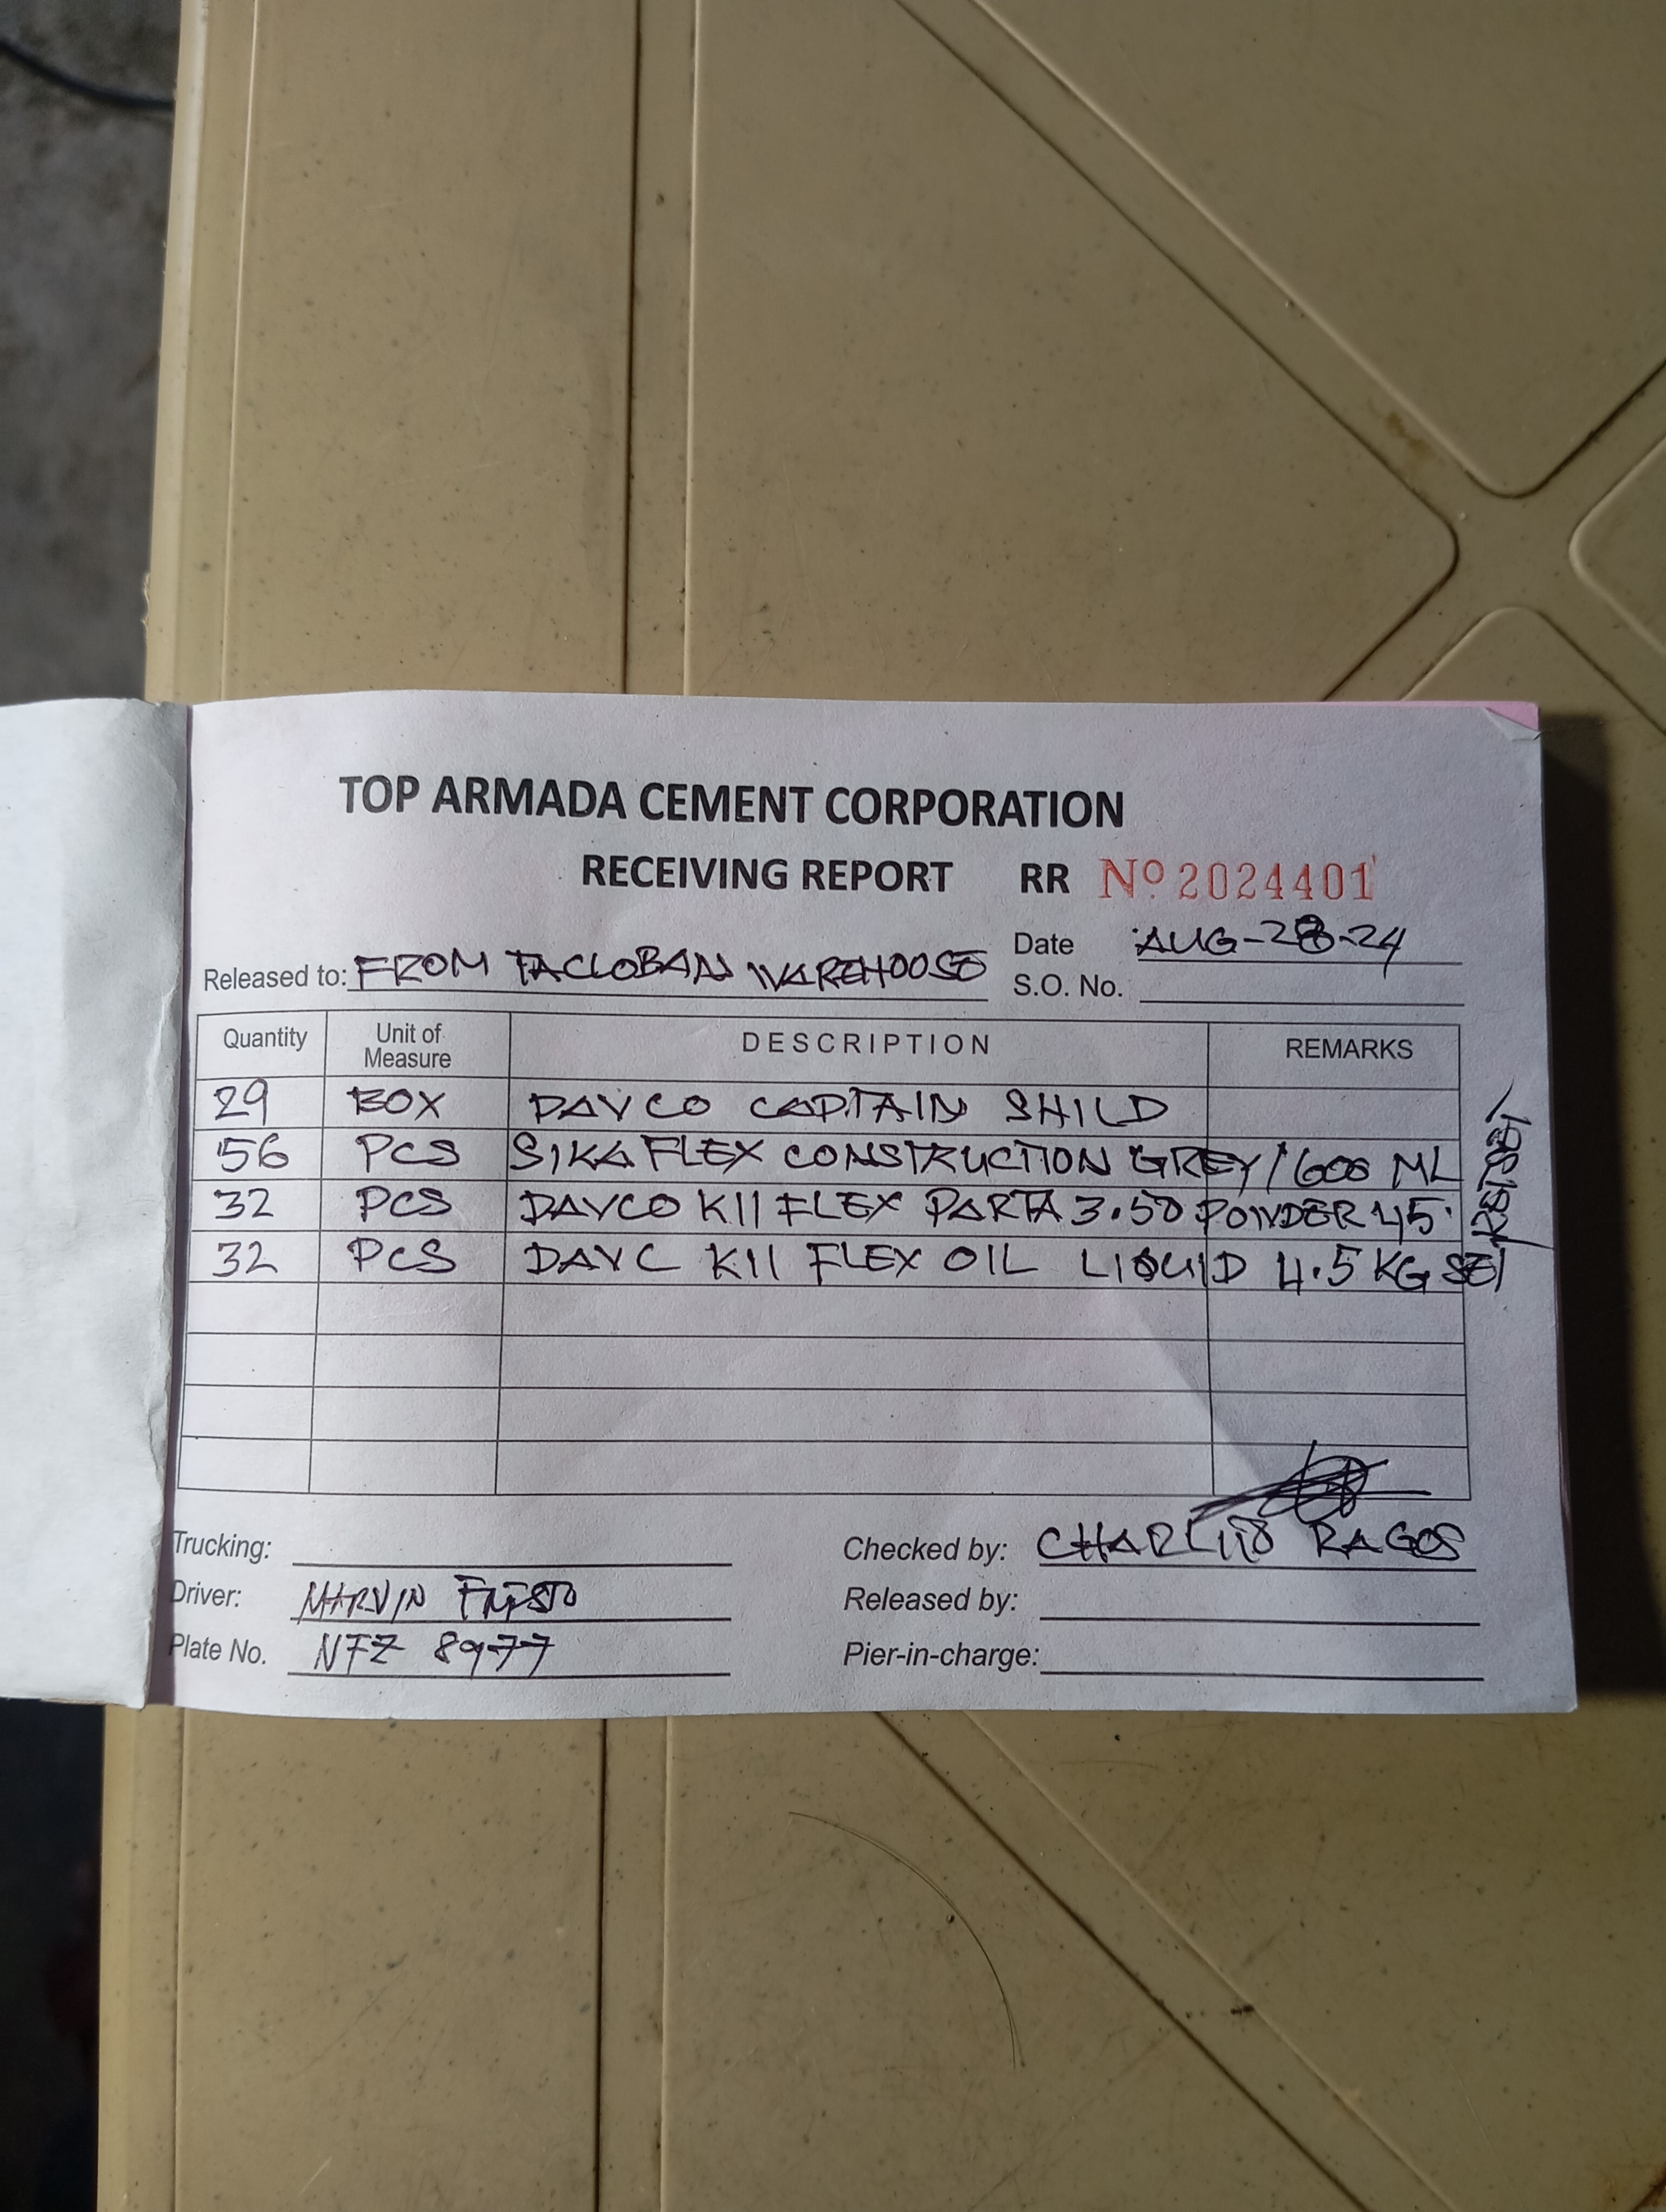 TOP ARMADA CEMENT CORPORATION
RECEIVING REPORT RR Nº 2024401
Date AUG-28-24
Released to: FROM TACLOBAN WAREHOOSE
S.O. No.
Quantity Unit of Measure DESCRIPTION REMARKS
29 BOX DAVCO CAPTAIN SHILD
56 PCS SIKAFLEX CONSTRUCTION GREY/600 ML
32 PCS DAVCO K11 FLEX PARTA 3.50 POWDER 45
32 PCS DAVC K11 FLEX OIL LIQUID 4.5 KG SET
Trucking:
Checked by: CHARLIE RAGOS
Driver: MARVIN
Released by:
Plate No. NFZ 8977
Pier-in-charge: